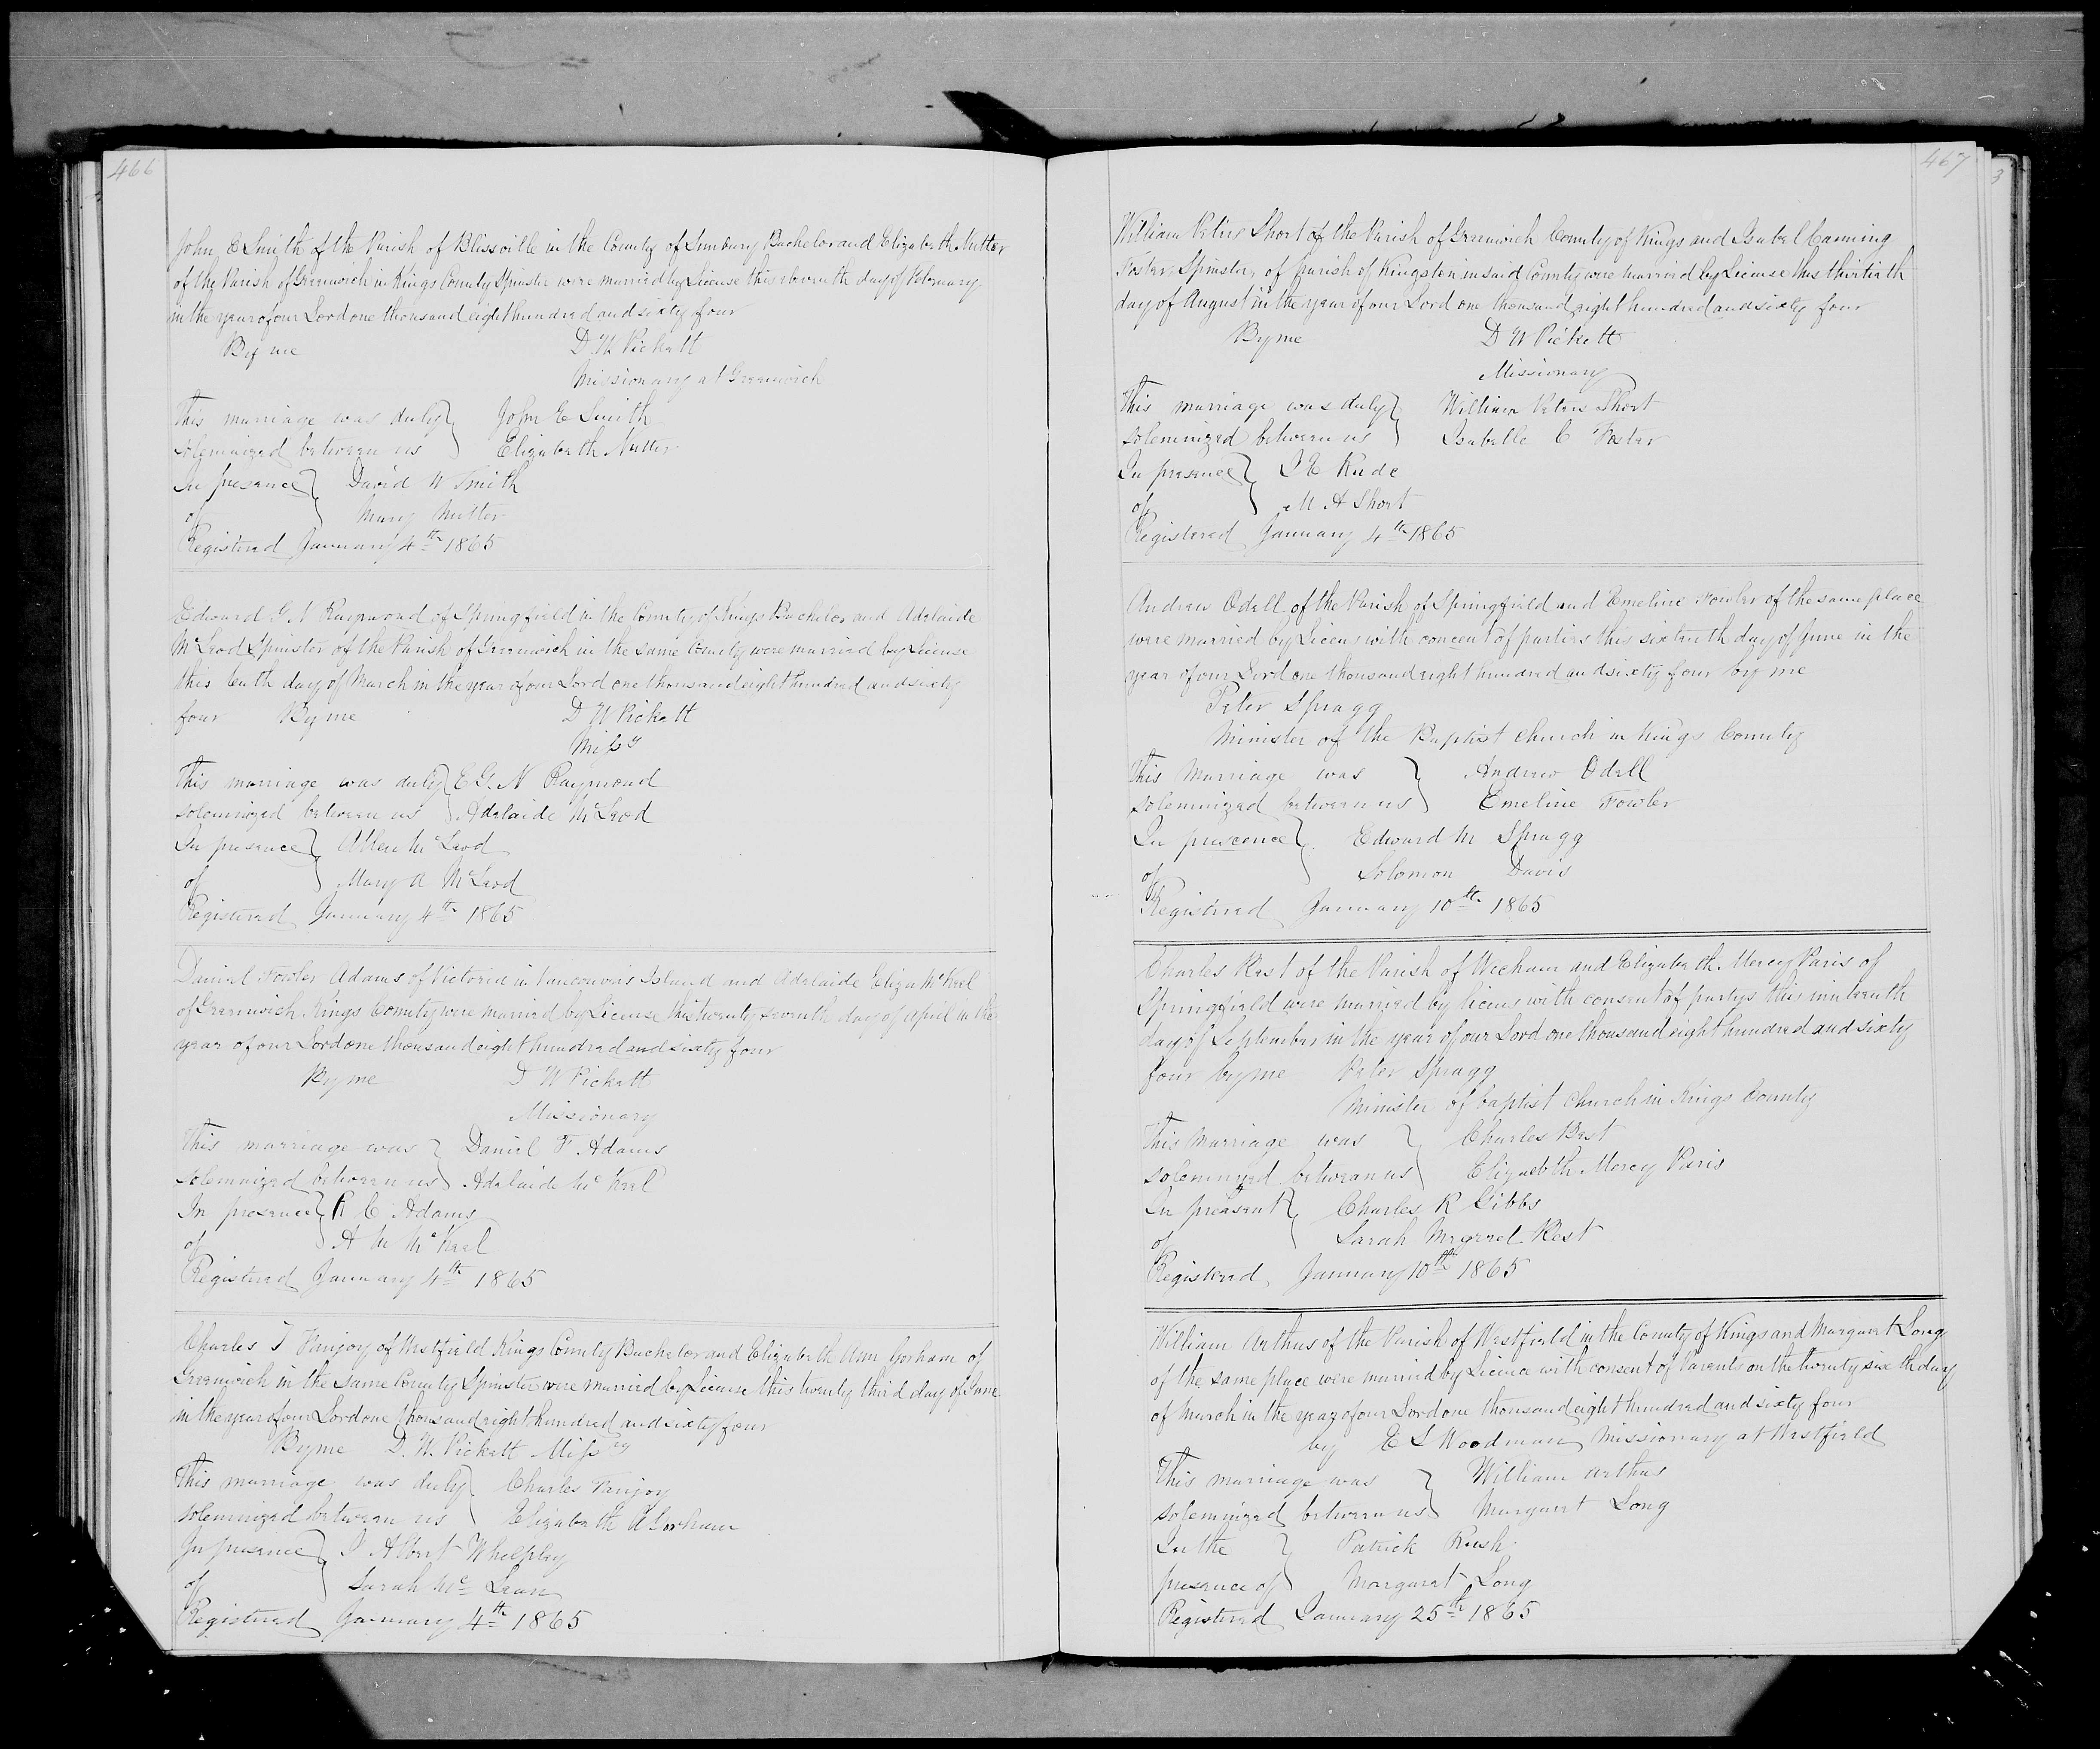 466
John E Smith of the Parish of Blissville in the County of Sunbury Bachelor and Elizabeth Nutter
of the Parish of Greenwich in Kings County Spinster were married by License this eleventh day of February
in the year of our Lord one thousand eight hundred and sixty four
By me D. W. Pickett
Missionary at Greenwich
This marriage was duly John E Smith
solemnized between us Elizabeth Nutter
In presence David W Smith
of Mary Nutter
Registered January 4th 1865
Edward G. N Raymond of Springfield in the County of Kings Bachelor and Adelaide
McLeod Spinster of the Parish of Greenwich in the same County were married by License
this tenth day of March in the year of our Lord one thousand eight hundred and sixty
four By me D W Pickett
Missy
This marriage was duly E G. N Raymond
solemnized between us Adelaide McLeod
In presence Allen McLeod
of Mary A McLeod
Registered January 4th 1865
Daniel Fowler Adams of Victoria in Vancouvers Island and Adelaide Eliza McKeel
of Greenwich Kings County were married by License this twenty seventh day of April in the
year of our Lord one thousand eight hundred and sixty four
By me D W Pickett
Missionary
This marriage was Daniel F. Adams
solemnized between us Adelaide McKeel
In presence R C Adams
of A W McKeel
Registered January 4th 1865
Charles T Vanjoy of Westfield Kings County Bachelor and Elizabeth Ann Gorham of
Greenwich in the same County Spinster were married by License this twenty third day of June
in the year of our Lord one thousand eight hundred and sixty four
By me D. W. Pickett Missry
This marriage was duly Charles Vanjoy
solemnized between us Elizabeth A Gorham
In presence J Albert Whelpley
of Sarah Mc Lean
Registered January 4th 1865
467
3
William Peters Short of the Parish of Greenwich County of Kings and Isabel Canning
Foster, Spinster, of parish of Kingston in said County were married by License this thirtieth
day of August in the year of our Lord one thousand eight hundred and sixty four
By me D W Pickett
Missionary
This marriage was duly William Peters Short
solemnized between us Isabelle C Foster
In presence J E Rude
of M A Short
Registered January 4th 1865
Andrew Odell of the Parish of Springfield and Emeline Fowler of the same place
were married by Licens with concent of parties this sixteenth day of June in the
year of our Lord one thousand eight hundred and sixty four by me
Peter Spragg
Minister of the Baptist Church in Kings County
This Marriage was Andrew Odell
solemnized between us Emeline Fowler
In prescence Edward M Spragg
of Solomon Davis
Registered January 10th 1865
Charles Best of the Parish of Wickam and Elizabeth Mercy Paris of
Springfield were married by licens with consent of partys this nineteenth
day of September in the year of our Lord one thousand eight hundred and sixty
four by me Peter Spragg
Minister of baptist Church in Kings County
This Marriage was Charles Best
solemnized between us Elizabeth Mercy Paris
In preasent Charles R Gibbs
of Sarah Margret Best
Registered January 10th 1865
William Arthus of the Parish of Westfield in the County of Kings and Margaret Long
of the same place were married by Licence with consent of Parents on the twenty six th day
of March in the year of our Lord one thousand eight hundred and sixty four
by E S Woodman Missionary at Westfield
This marriage was William Arthus
solemnized between us Margaret Long
In the Patrick Rush
presence of Margaret Long
Registered January 25th 1865